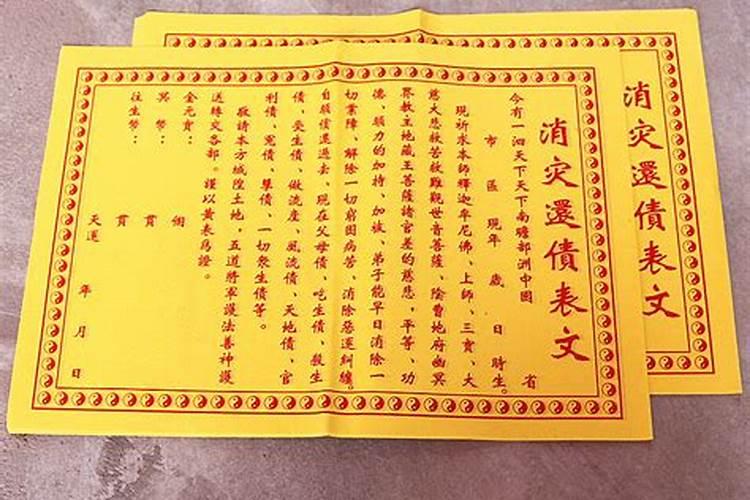 消灾還債表文
今有一泗天下天下南瞻部洲中國 省
市 區 現年 歲 日 時生。
現祈求本師釋迦牟尼佛、上師、三寶、大
慈大悲救苦救難觀世音菩薩、陰曹地府幽冥
界教主地藏王菩薩諸官差的慈悲,平等、功
德、願力的加持、加被、弟子能早日消除一
切業障、解除一切窮困病苦、消除惡運糾纏。
自願償還過去、現在父母債、吃生債、殺生
債、受生債、做流產、風流債、天地債、官
利債、冤債、孽債、一切衆生債等。
敬請本方城隍土地,五道將軍護法善神護
送轉交各部。謹以黄表爲證。
金元寶: 個
冥幣: 貫
往生幣: 貫
天運 年 月 日
消灾還債表文